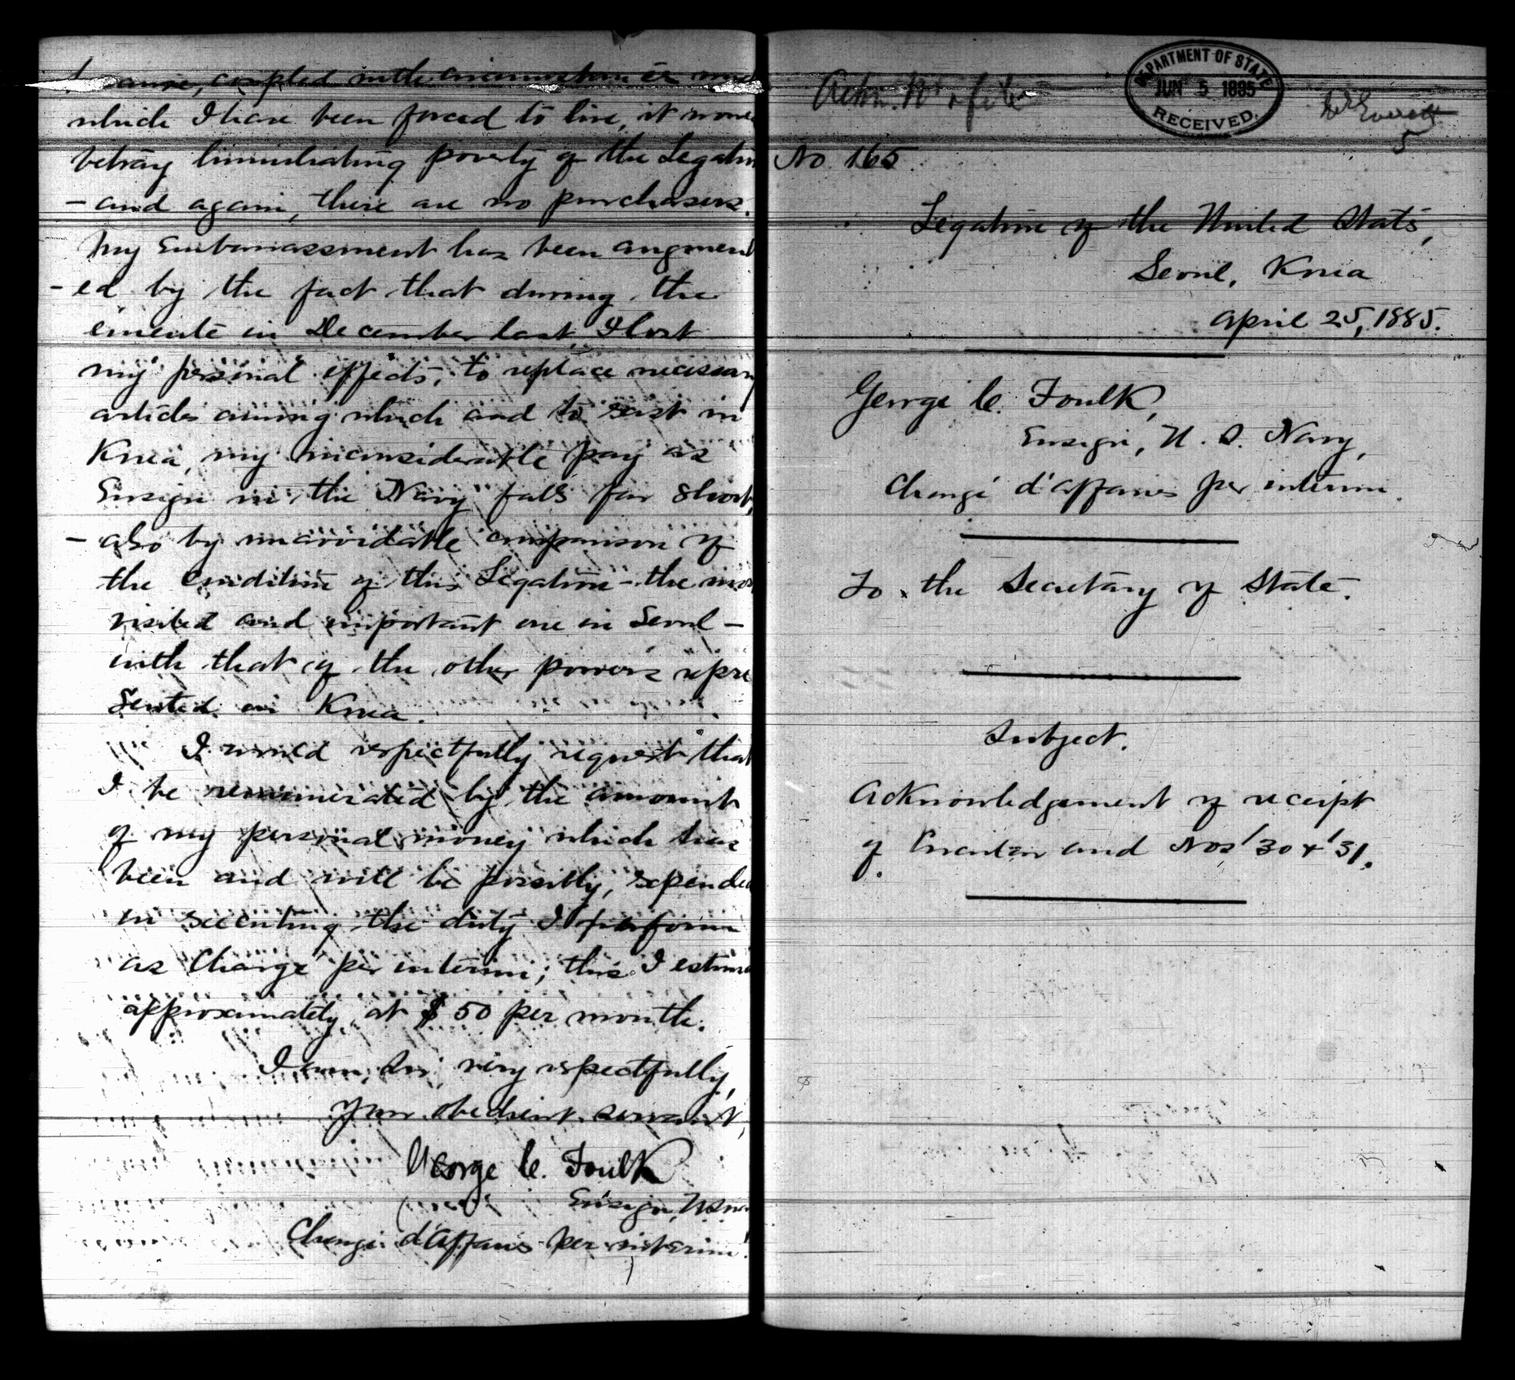 cause, coupled with circumstances under
which I have been forced to live, it would
betray humiliating poverty of the Legation
— and again, there are no purchasers.
My embarrassment has been augment
-ed by the fact that during the
émeute in December last, I lost
my personal effects, to replace necessary
articles among which and to exist in
Korea, my inconsiderable pay as
Ensign in the Navy falls far short,
— also by unavoidable comparison of
the condition of this Legation – the most
visited and important one in Seoul –
with that of the other powers repre
sented in Korea.
I would respectfully request that
I be remunerated by the amount
of my personal money which has
been and will be possibly, expended
in executing the duty I perform
as Chargé per interim; this I estimate
approximately at $ 50 per month.
I am, Sir, very respectfully,
Your obedient servant,
George C. Foulk
Ensign, U.S.N.
Chargé d'Affaires per interim.
Ackn. & file
DEPARTMENT OF STATE
JUN 5 1885
RECEIVED.
Mr Everett
5
No 165.
Legation of the United States,
Seoul, Korea
April 25, 1885.
George C. Foulk,
Ensign, U. S. Navy,
Chargé d'Affaires per interim.
To the Secretary of State.
Subject.
Acknowledgement of receipt
of and Nos 30 & 31.